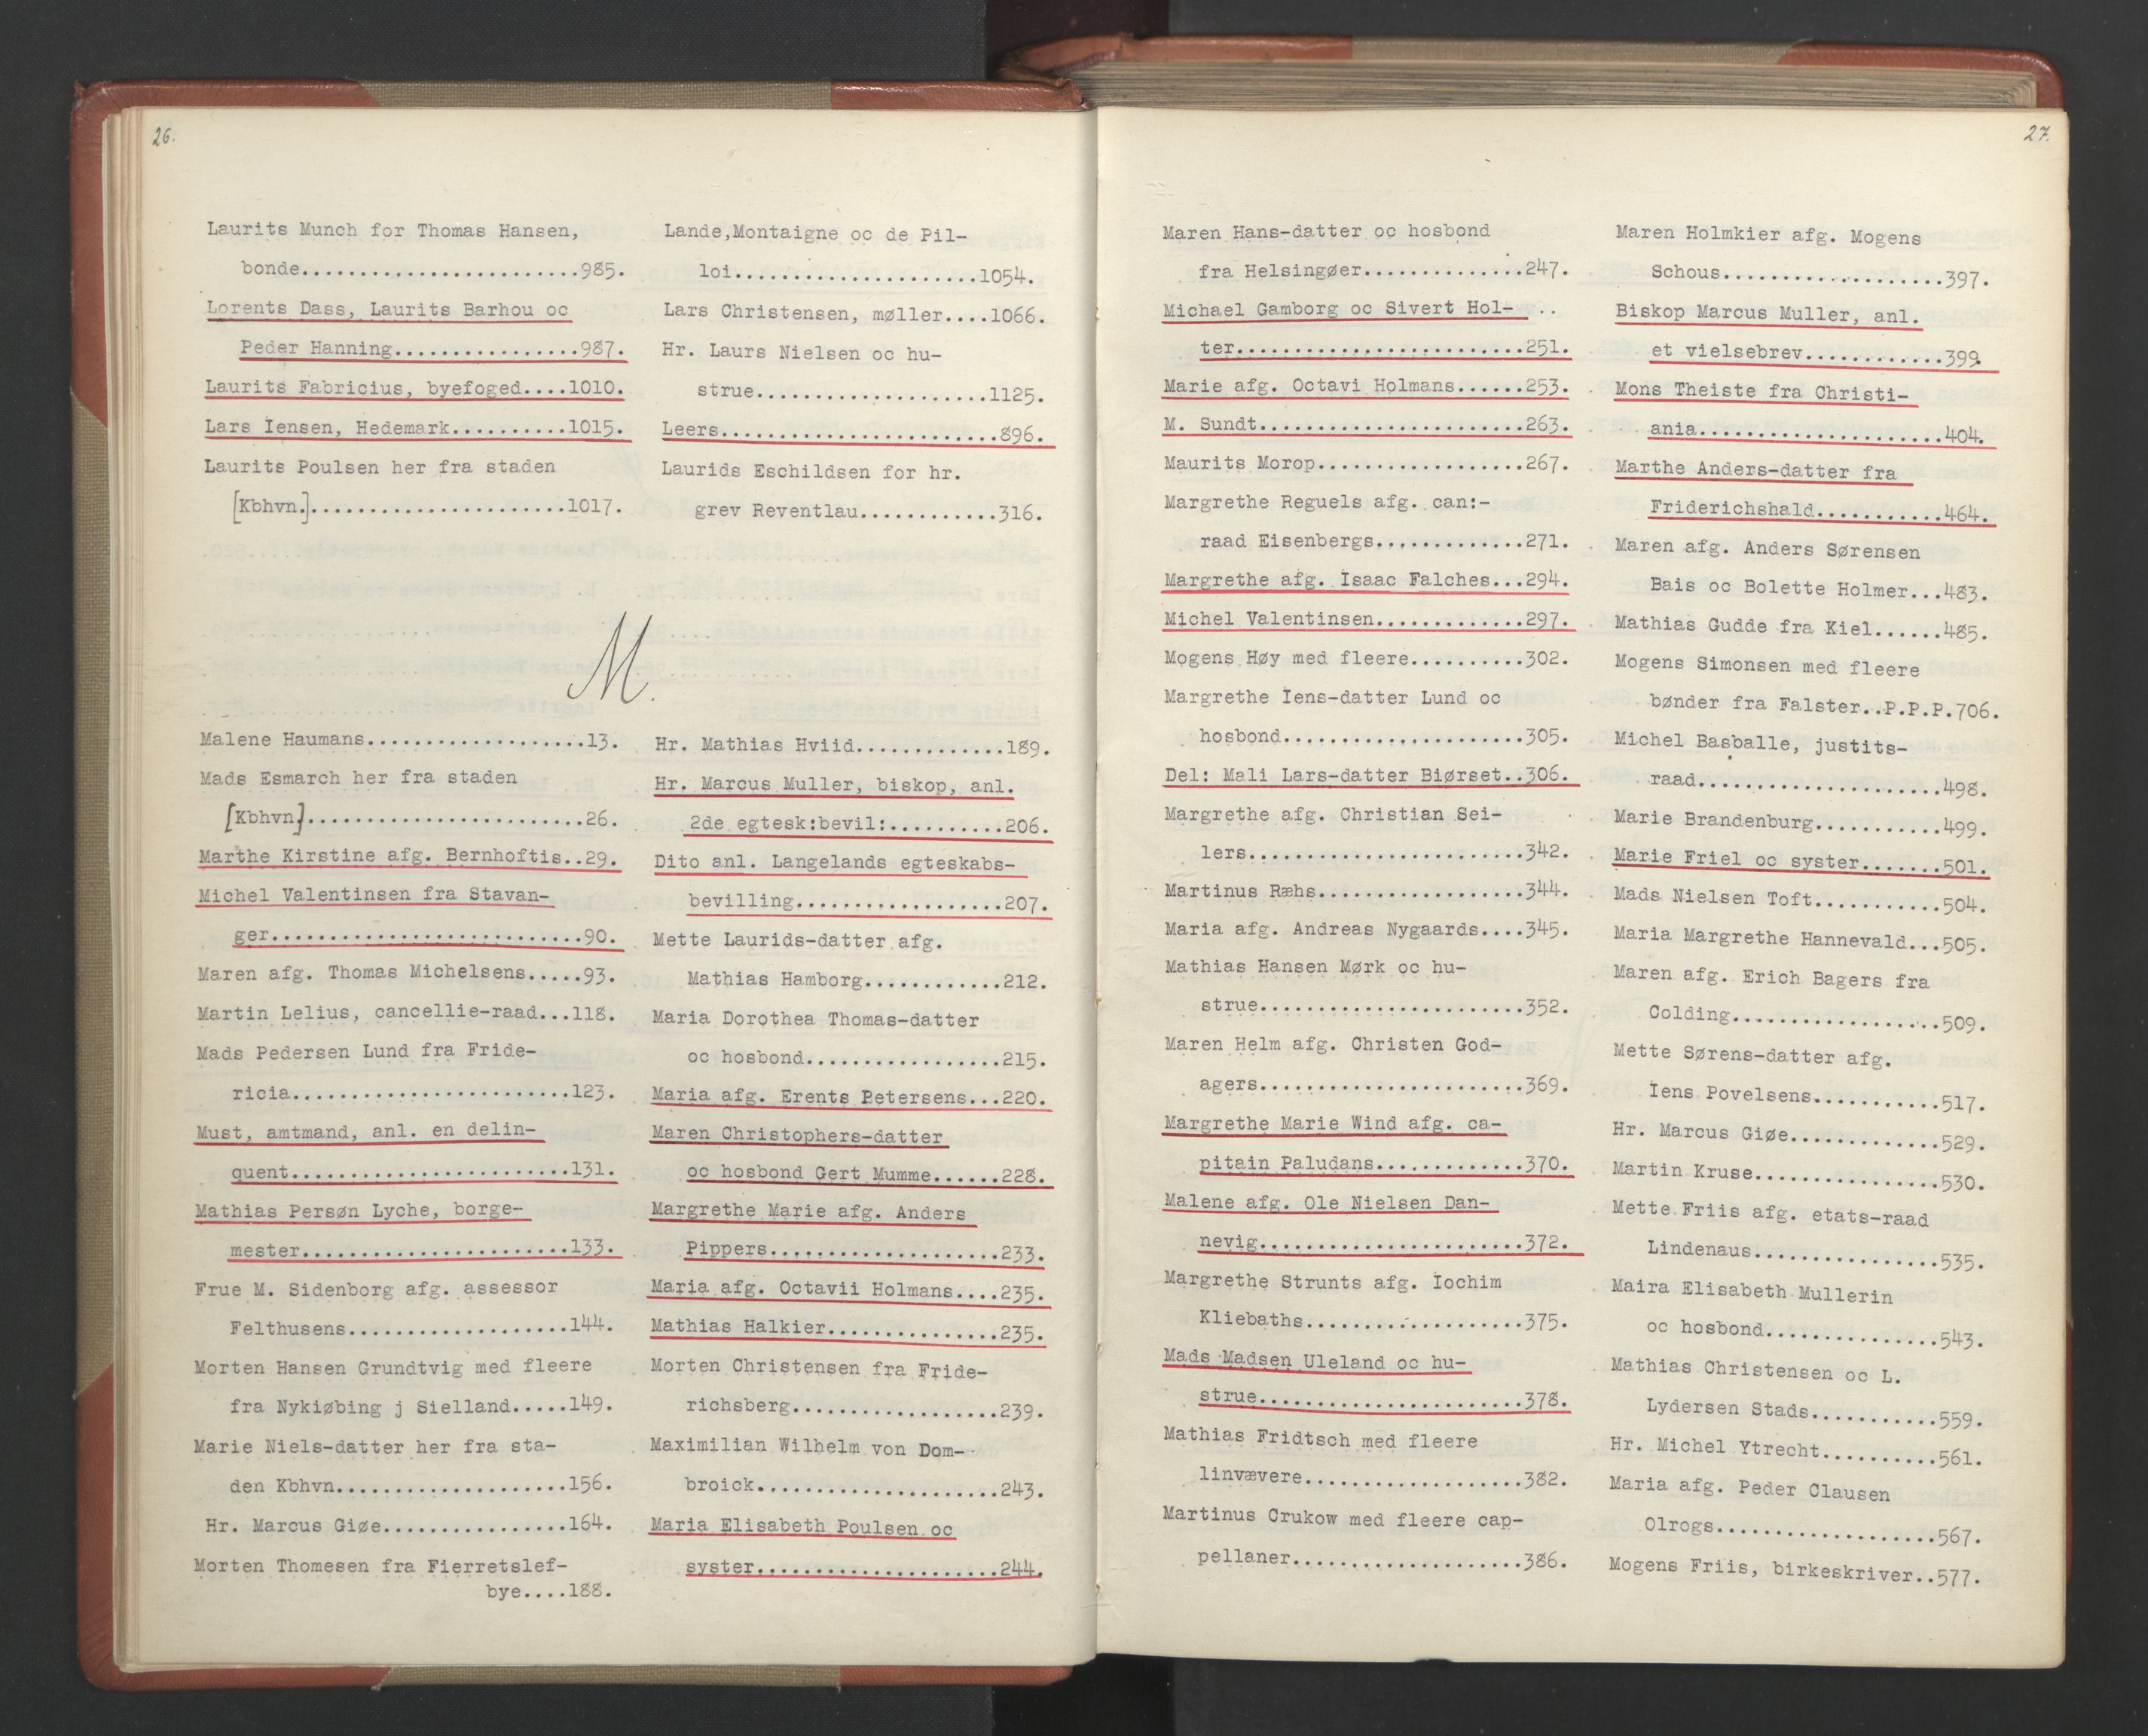 26.
Laurits Munch for Thomas Hansen,
bonde........................985.
Lorents Dass, Laurits Barhou oc
Peder Hanning................987.
Laurits Fabricius, byefoged....1010.
Lars Iensen, Hedemark..........1015.
Laurits Poulsen her fra staden
[Kbhvn.]......................1017.
Lande,Montaigne oc de Pil-
loi.....................1054.
Lars Christensen, møller....1066.
Hr. Laurs Nielsen oc hu-
strue....................1125.
Leers........................896.
Laurids Eschildsen for hr.
grev Reventlau............316.
M.
Malene Haumans...................13.
Mads Esmarch her fra staden
[Kbhvn]........................26.
Marthe Kirstine afg. Bernhoftis..29.
Michel Valentinsen fra Stavan-
ger...........................90.
Maren afg. Thomas Michelsens.....93.
Martin Lelius, cancellie-raad...118.
Mads Pedersen Lund fra Fride-
ricia........................123.
Must, amtmand, anl. en delin-
quent........................131.
Mathias Persøn Lyche, borge-
mester.......................133.
Frue M. Sidenborg afg. assessor
Felthusens...................144.
Morten Hansen Grundtvig med fleere
fra Nykiøbing j Sielland.....149.
Marie Niels-datter her fra sta-
den Kbhvn....................156.
Hr. Marcus Giøe................164.
Morten Thomesen fra Fierretslef-
bye....188.
Hr. Mathias Hviid.............189.
Hr. Marcus Muller, biskop, anl.
2de egtesk:bevil:..........206.
Dito anl. Langelands egteskabs-
bevilling..................207.
Mette Laurids-datter afg.
Mathias Hamborg............212.
Maria Dorothea Thomas-datter
oc hosbond.................215.
Maria afg. Erents Petersens...220.
Maren Christophers-datter
oc hosbond Gert Mumme......228.
Margrethe Marie afg. Anders
Pippers....................233.
Maria afg. Octavii Holmans....235.
Mathias Halkier...............235.
Morten Christensen fra Fride-
richsberg..................239.
Maximilian Wilhelm von Dom-
broick.....................243.
Maria Elisabeth Poulsen oc
syster.....................244.
27.
Maren Hans-datter oc hosbond
fra Helsingøer..............247.
Michael Gamborg oc Sivert Hol-
ter.........................251.
Marie afg. Octavi Holmans......253.
M. Sundt.......................263.
Maurits Morop..................267.
Margrethe Reguels afg. can:-
raad Eisenbergs.............271.
Margrethe afg. Isaac Falches...294.
Michel Valentinsen.............297.
Mogens Høy med fleere..........302.
Margrethe Iens-datter Lund oc
hosbond.....................305.
Del: Mali Lars-datter Biørset..306.
Margrethe afg. Christian Sei-
lers........................342.
Martinus Ræhs..................344.
Maria afg. Andreas Nygaards....345.
Mathias Hansen Mørk oc hu-
strue.......................352.
Maren Helm afg. Christen God-
agers.......................369.
Margrethe Marie Wind afg. ca-
pitain Paludans.............370.
Malene afg. Ole Nielsen Dan-
nevig.......................372.
Margrethe Strunts afg. Iochim
Kliebaths...................375.
Mads Madsen Uleland oc hu-
strue.......................378.
Mathias Fridtsch med fleere
linvævere...................382.
Martinus Crukow med fleere cap-
pellaner....................386.
Maren Holmkier afg. Mogens
Schous...................397.
Biskop Marcus Muller, anl.
et vielsebrev............399.
Mons Theiste fra Christi-
ania.....................404.
Marthe Anders-datter fra
Friderichshald...........464.
Maren afg. Anders Sørensen
Bais oc Bolette Holmer...483.
Mathias Gudde fra Kiel......485.
Mogens Simonsen med fleere
bønder fra Falster..P.P.P.706.
Michel Basballe, justits-
raad.....................498.
Marie Brandenburg...........499.
Marie Friel oc syster.......501.
Mads Nielsen Toft...........504.
Maria Margrethe Hannevald...505.
Maren afg. Erich Bagers fra
Colding..................509.
Mette Sørens-datter afg.
Iens Povelsens...........517.
Hr. Marcus Giøe.............529.
Martin Kruse................530.
Mette Friis afg. etats-raad
Lindenaus................535.
Maira Elisabeth Mullerin
oc hosbond...............543.
Mathias Christensen oc L.
Lydersen Stads...........559.
Hr. Michel Ytrecht..........561.
Maria afg. Peder Clausen
Olrogs...................567.
Mogens Friis, birkeskriver..577.